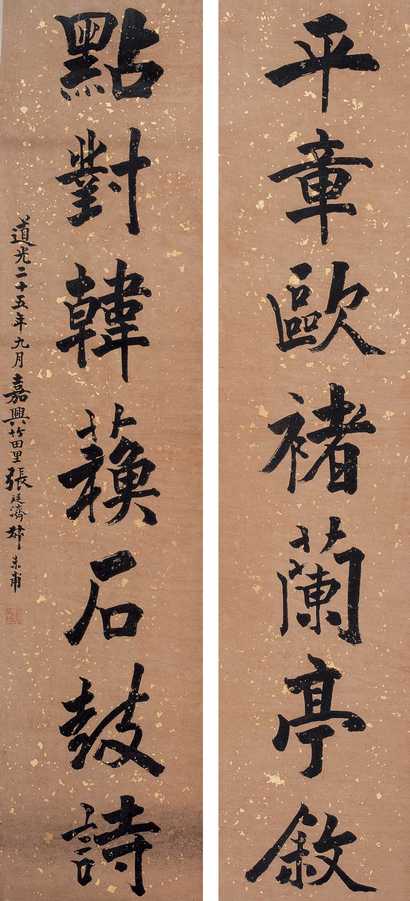 平章歐褚蘭亭敘
點對韓蘓石鼓詩
道光二十五年九月嘉興竹田里張廷濟叔未甫